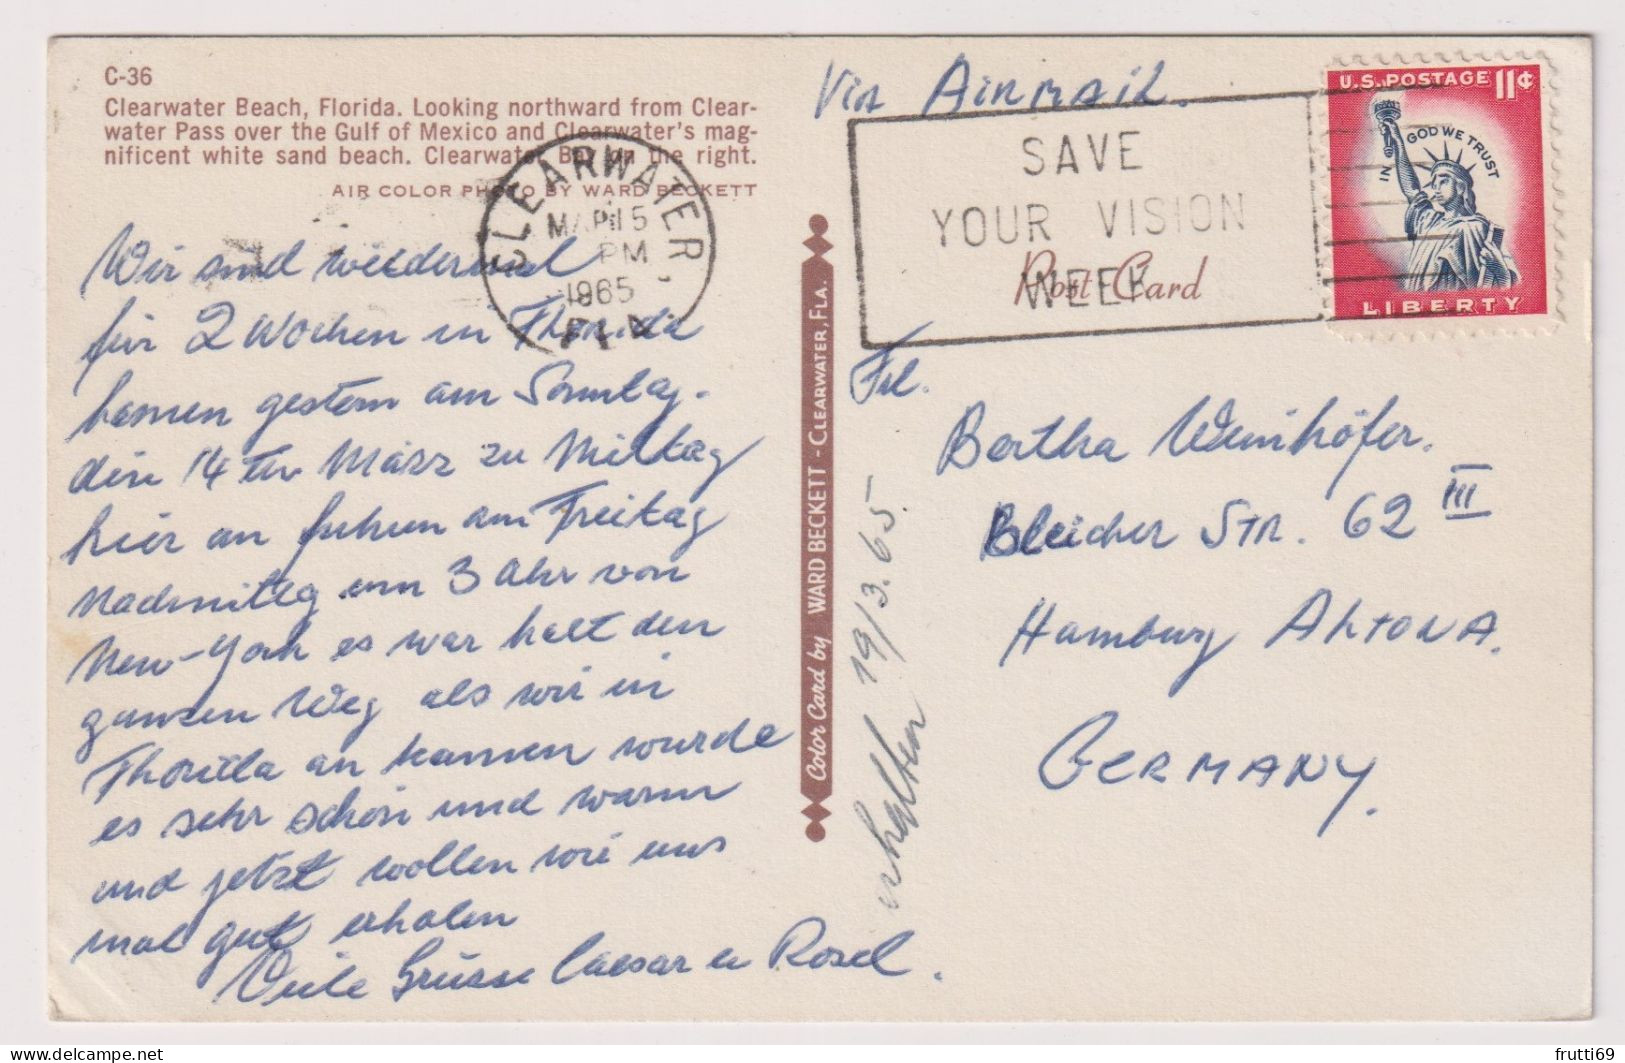 C-36
Clearwater Beach, Florida. Looking northward from Clear-
water Pass over the Gulf of Mexico and Clearwater's mag-
nificent white sand beach. Clearwater Bay on the right.
AIR COLOR PHOTO BY WARD BECKETT
Wir sind wiedermal
für 2 Wochen in Thorida
kamen gestern am Sonntag.
den 14 ten März zu Mittag
hier an fuhren am Freitag
Nachmittag um 3 Uhr von
New-York es war kalt den
ganzen Weg als wir in
Thorida an kamen wurde
es sehr schön und warm
und jetzt wollen wir uns
mal gut erholen
Viele Grüsse Caesar u Rosel.
CLEARWATER
PM
1965
FLA
Color Card by WARD BECKETT - CLEARWATER, FLA.
Via Airmail.
SAVE
YOUR VISION
WEEK
Post Card
U.S. POSTAGE 11¢
IN GOD WE TRUST
LIBERTY
Frl.
Bertha Weinhöfer.
Bleicher Str. 62 III
Hamburg Altona.
Germany.
erhalten 19/3.65.
frutti69
delcampe.net